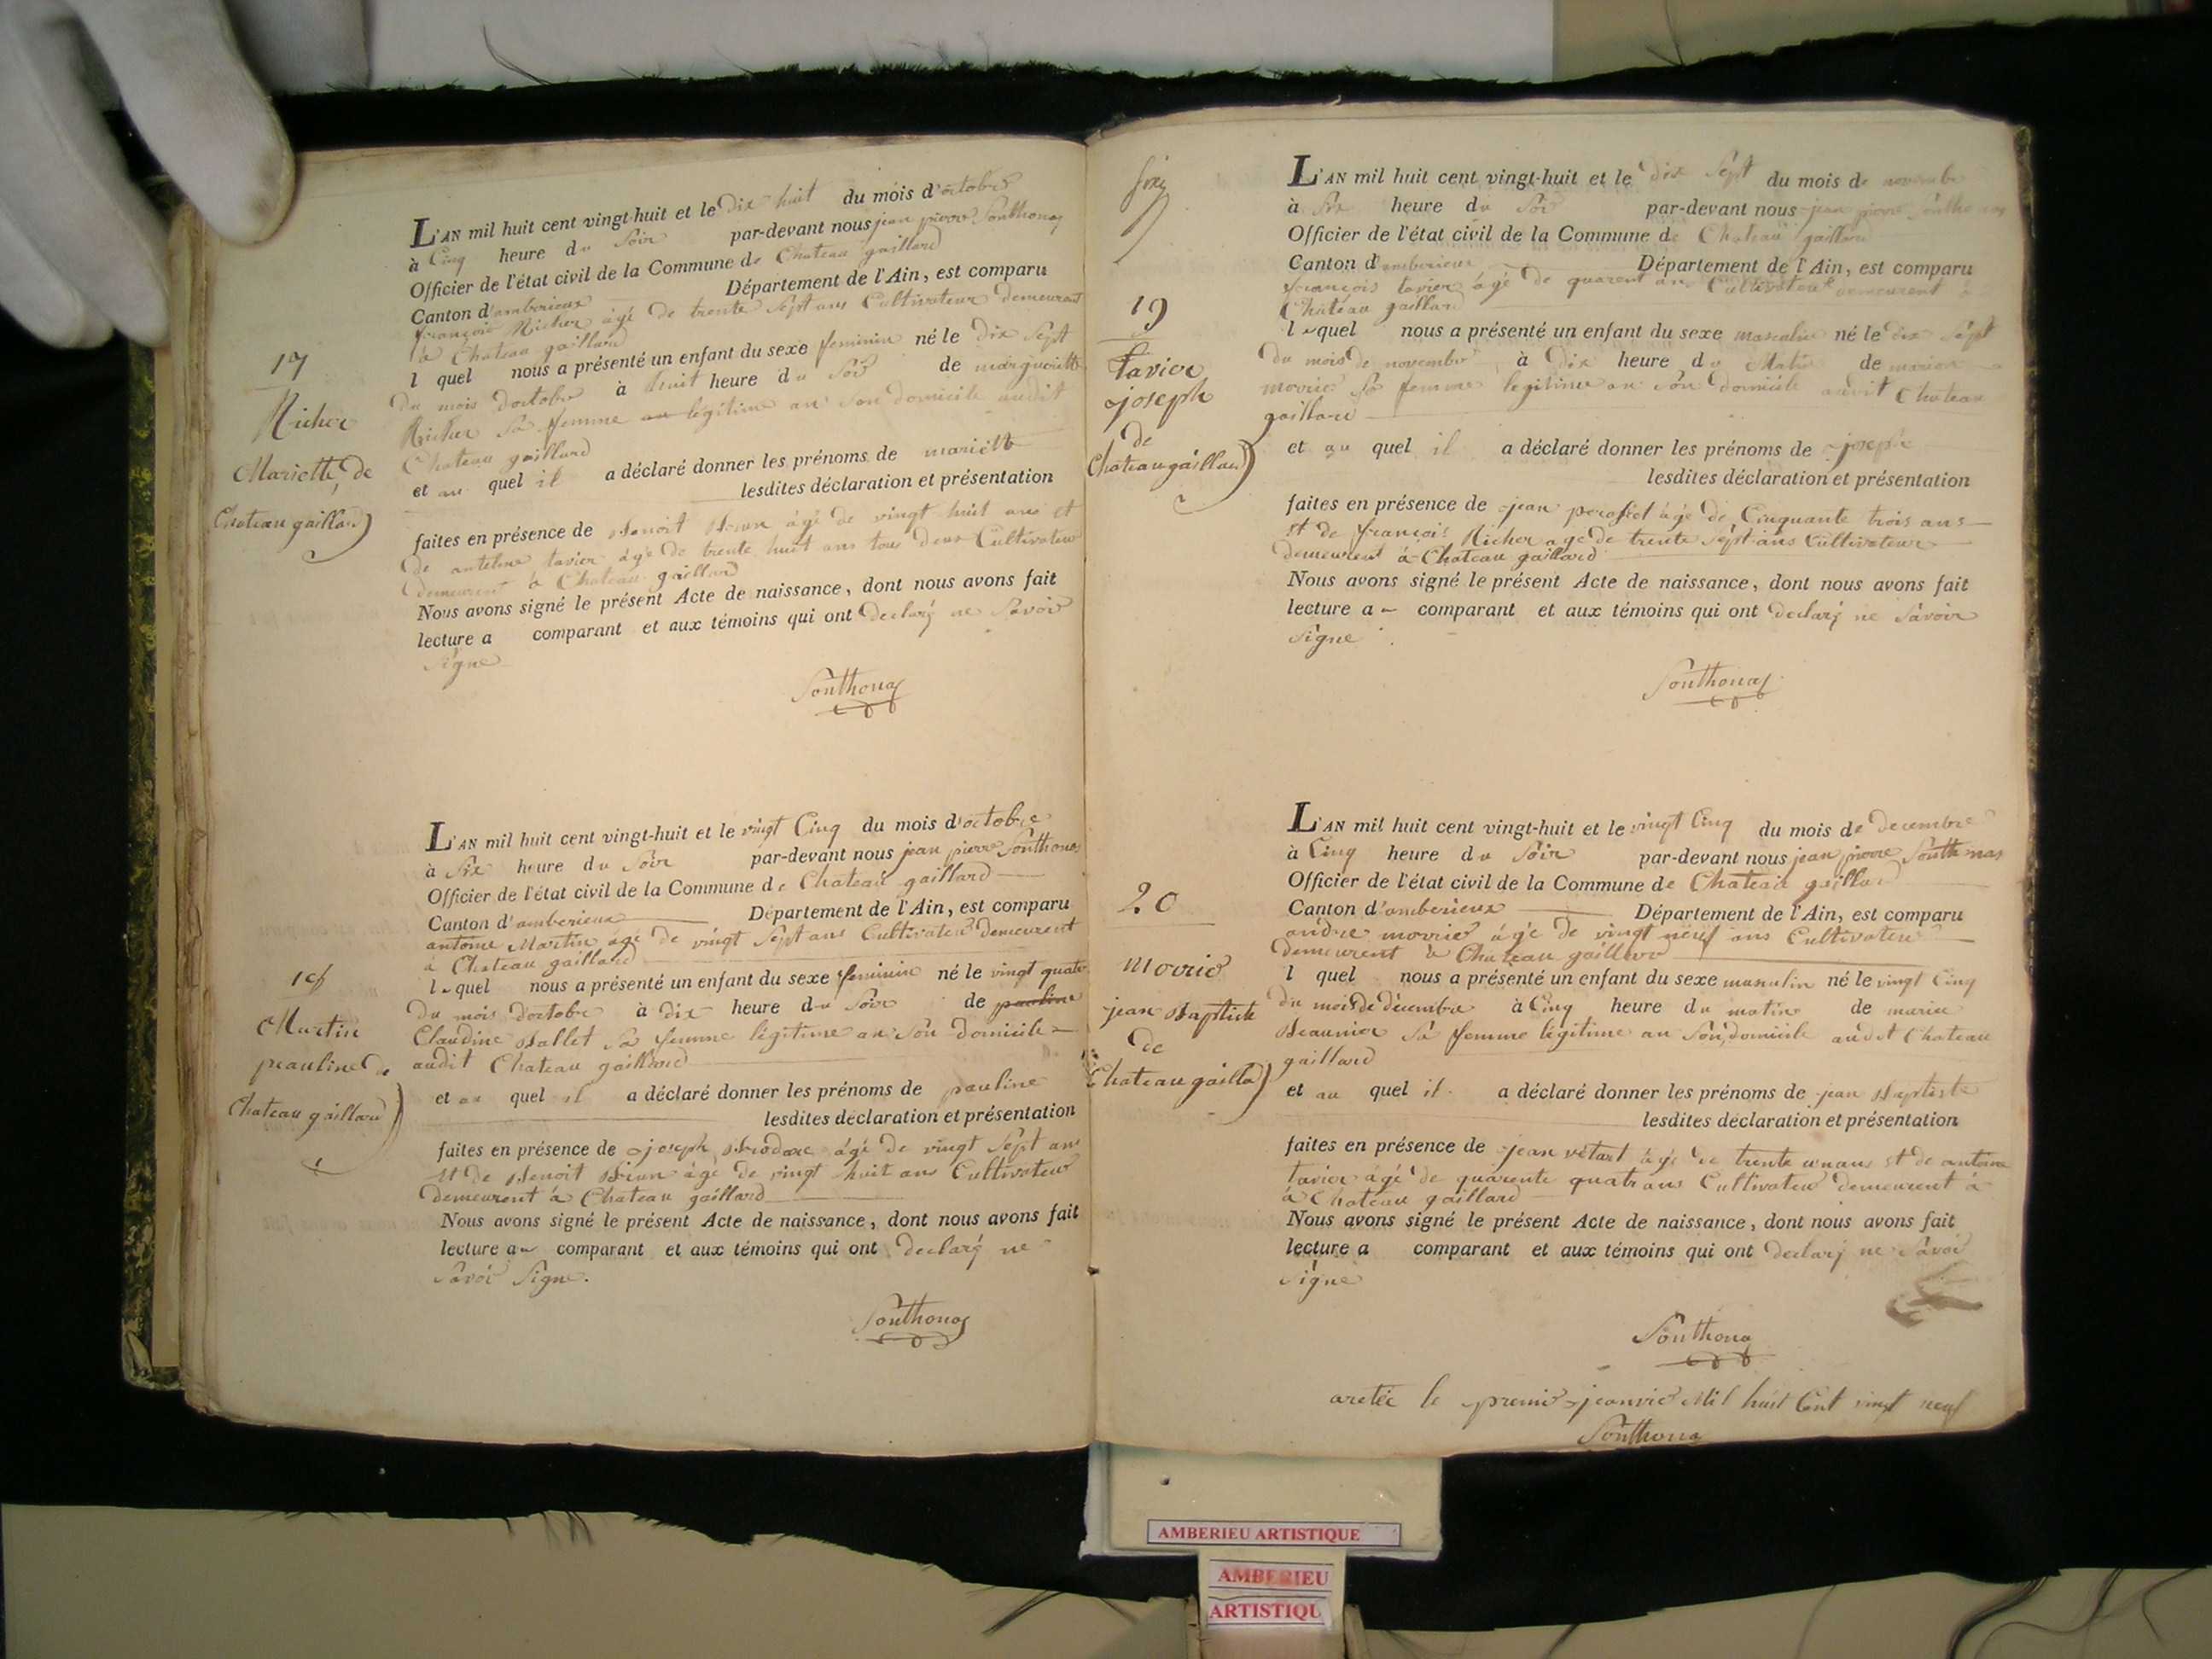 17
Richer
Mariette de
Chateau gaillard
L'AN mil huit cent vingt-huit et le dix huit du mois d'octobre
à Cinq heure du Soir par-devant nous jean pierre Sonthonas
Officier de l'état civil de la Commune de Chateau gaillard
Canton d'amberieux Département de l'Ain, est comparu
françois Richer âgé de trente Sept ans Cultivateur demeurent
a Chateau gaillard
l quel nous a présenté un enfant du sexe feminin né le dix Sept
du mois doctobre à huit heure du Soir de margueritte
Richer Sa femme legitime an Son domicile audit
Chateau gaillard
et au quel il a déclaré donner les prénoms de mariette
lesdites déclaration et présentation
faites en présence de Benoit Brun âgé de vingt huit ans et
de antelme tavier âgé de trente huit ans tous deux Cultivateur
demeurent a Chateau gaillard
Nous avons signé le présent Acte de naissance, dont nous avons fait
lecture a comparant et aux témoins qui ont declaré ne Savoir
Signe
Sonthonas
18
Martin
pauline de
Chateau gaillard
L'AN mil huit cent vingt-huit et le vingt Cinq du mois d'octobre
à Six heure du Soir par-devant nous jean pierre Sonthonas
Officier de l'état civil de la Commune de Chateau gaillard
Canton d'amberieux Département de l'Ain, est comparu
antoine Martin âgé de vingt Sept ans Cultivateur demeurent
a Chateau gaillard
le quel nous a présenté un enfant du sexe feminin né le vingt quatre
du mois doctobre à dix heure du Soir de pauline
Claudine Ballet Sa femme légitime an Son domicile
audit Chateau gaillard
et au quel il a déclaré donner les prénoms de pauline
lesdites déclaration et présentation
faites en présence de joseph âgé de vingt Sept ans
et de Benoit Brun âgé de vingt huit ans Cultivateur
demeurent à Chateau gaillard
Nous avons signé le présent Acte de naissance, dont nous avons fait
lecture au comparant et aux témoins qui ont declaré ne
Savoir Signe.
Sonthonas
19
tavier
joseph
de
Chateau gaillard
L'AN mil huit cent vingt-huit et le dix Sept du mois de novembre
à Six heure du Soir par-devant nous jean pierre Sonthonas
Officier de l'état civil de la Commune de Chateau gaillard
Canton d'amberieux Département de l'Ain, est comparu
françois tavier âgé de quarent ans Cultivateur demeurent à
Chateau gaillard
le quel nous a présenté un enfant du sexe masculin né le dix Sept
du mois de novembre à dix heure du Matin de marion
movrier Sa femme legitime an Son domicile audit Chateau
gaillard
et au quel il a déclaré donner les prénoms de joseph
lesdites déclaration et présentation
faites en présence de jean âgé de Cinquante trois ans
et de françois Richer age de trente Sept ans Cultivateur
demeurent à Chateau gaillard
Nous avons signé le présent Acte de naissance, dont nous avons fait
lecture au comparant et aux témoins qui ont declaré ne Savoir
Signe.
Sonthonas
20
movrier
jean Baptiste
de
Chateau gaillard
L'AN mil huit cent vingt-huit et le vingt Cinq du mois de decembre
à Cinq heure du Soir par-devant nous jean pierre Sonthonas
Officier de l'état civil de la Commune de Chateau gaillard
Canton d'amberieux Département de l'Ain, est comparu
andre movrier âgé de vingt neuf ans Cultivateur
demeurent à Chateau gaillard
l quel nous a présenté un enfant du sexe masculin né le vingt Cinq
du mois de décembre à Cinq heure du matin de marie
Beaunier Sa femme légitime an Son domicile audit Chateau
gaillard
et au quel il a déclaré donner les prénoms de jean Baptiste
lesdites déclaration et présentation
faites en présence de jean âgé de trente un ans et de antoine
tavier âgé de quarente quatr ans Cultivateur demeurent à
a Chateau gaillard
Nous avons signé le présent Acte de naissance, dont nous avons fait
lecture a comparant et aux témoins qui ont declaré ne Savoir
Signe
Sonthonas
aretée le premier jeanvier Mil huit Cent vingt neuf
Sonthonas
AMBERIEU ARTISTIQUE
AMBERIEU
ARTISTIQU